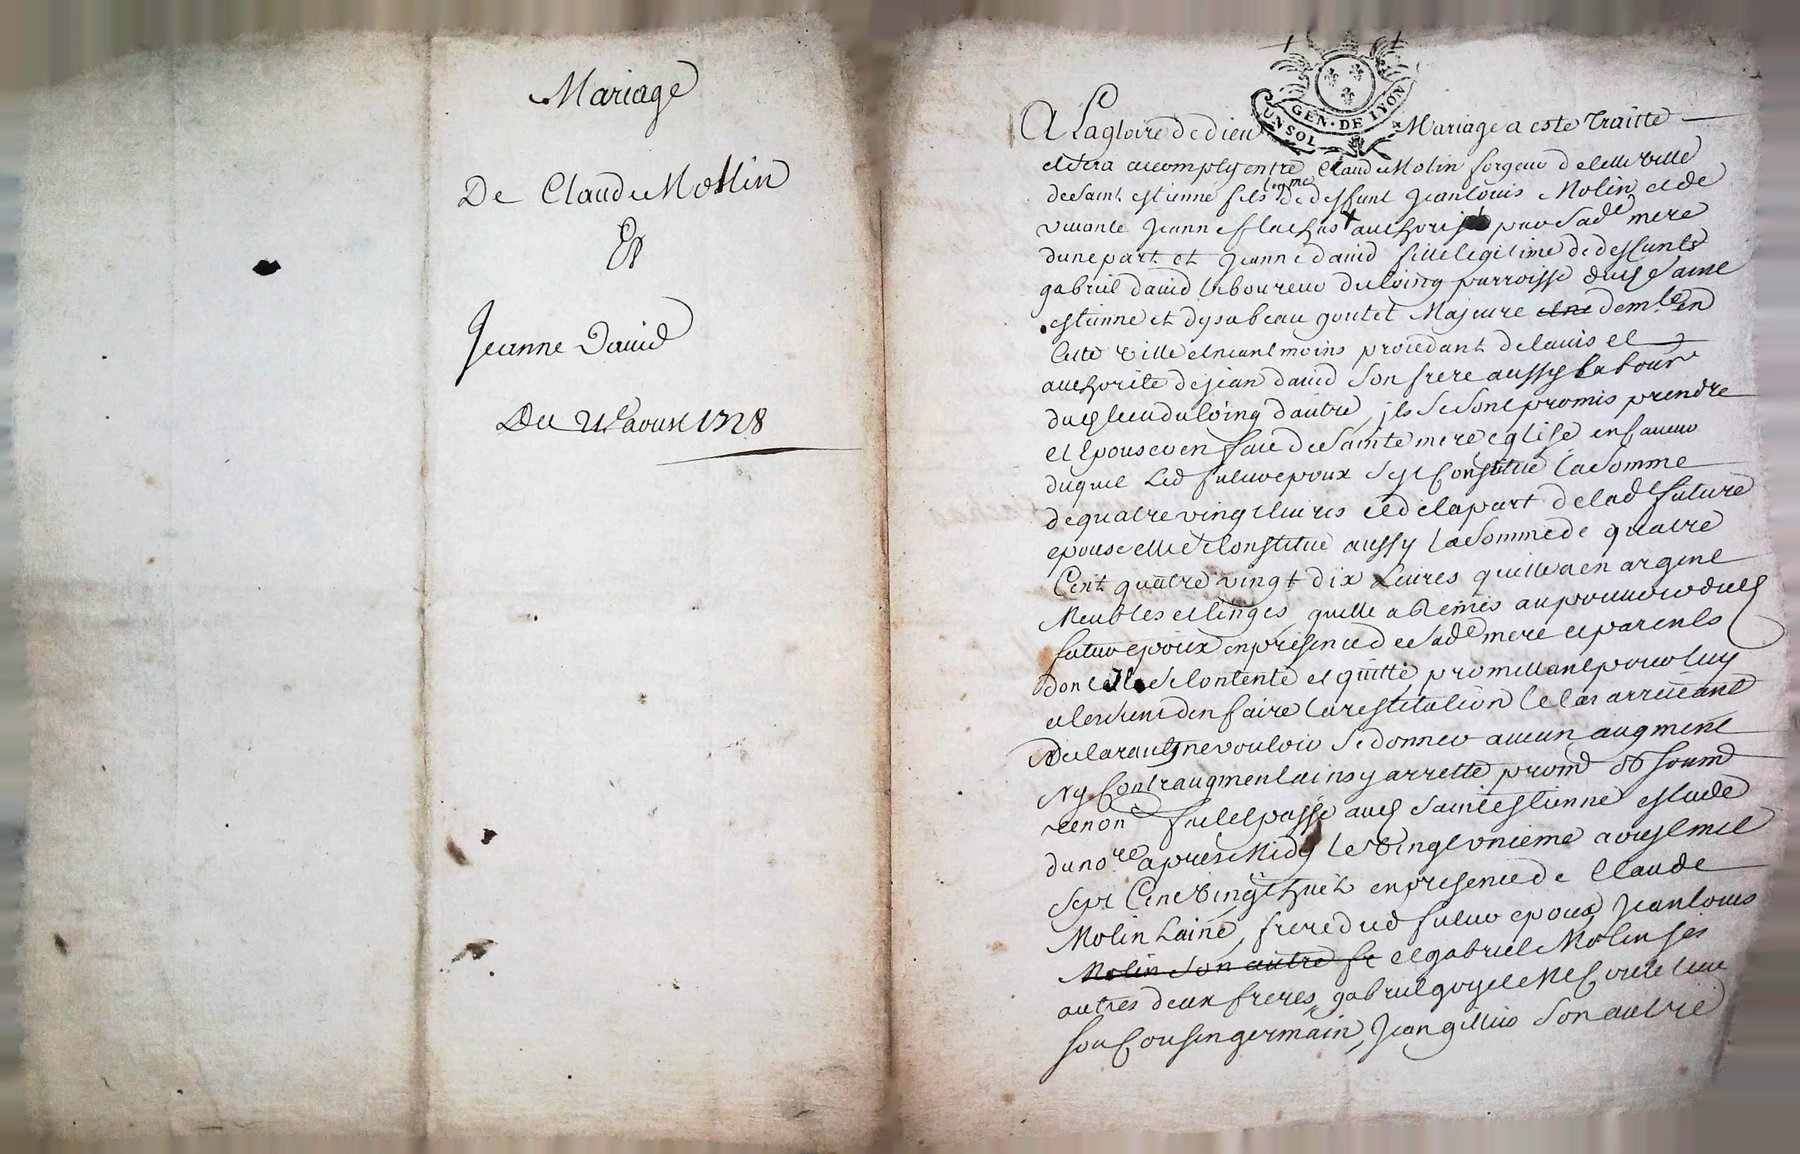 Mariage
De Claude Mollin
Et
Jeanne David
Du 21e aoust 1728
GEN. DE LYON
UN SOL
A La gloire de dieu Mariage a este Traitte
et sera accomply entre Claude Molin forgeur de cette ville
de Saint estienne fils legme de deffunt Jean louis Molin et de
vivante Jeanne flachas authorisé par Sade mere
dune part et Jeanne david fille legitime de deffunts
gabriel david laboureur du loing parroisse dud Saint
estienne et dysabeau goutet Majeure demte en
cette ville et neantmoins procedant de lavis et
authorité de jean david Son frere aussy labour
dud lieu du loing dautre, ils Se Sont promis prendre
et Epouser en face de Sainte mere eglise en faveur
duquel Led futur epoux Sest Constitué La Somme
de quatre vingt livres et de la part de lad future
epouse elle Sest Constitué aussy La Somme de quatre
Cent quatre vingt dix Livres quelle a en argent
Meubles et linges, quelle a Remis au pouvoir dud
futur epoux en presence de Sade mere et parents
dont il Se Contente et quitte promettant pour luy
et les siens den faire la restitution le Cas arrivant
Declarants ne vouloir Se donner aucun augment
ny Contraugment ainsy arretté promt ob soumt
renon fait et passé aud Saint estienne estude
du nore apres Midy Le Vingt unieme aoust mil
Sept Cent Vingt huit en presence de Claude
Molin Lainé, frere dud futur epoux, Jean louis
Molin Son autre fr et gabriel Molin ses
autres deux freres, gabriel goyet
Son Cousin germain, Jean gillier Son autre